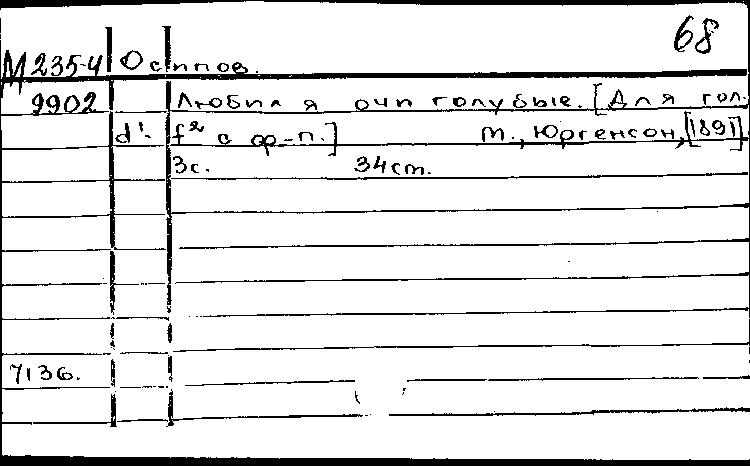 68
М 235-4 Осипов.
9902 Любил я очи голубые. [Для гол.
d¹- f² с ф-п.] М., Юргенсон, [1891].
3с. 34cm.
7136.